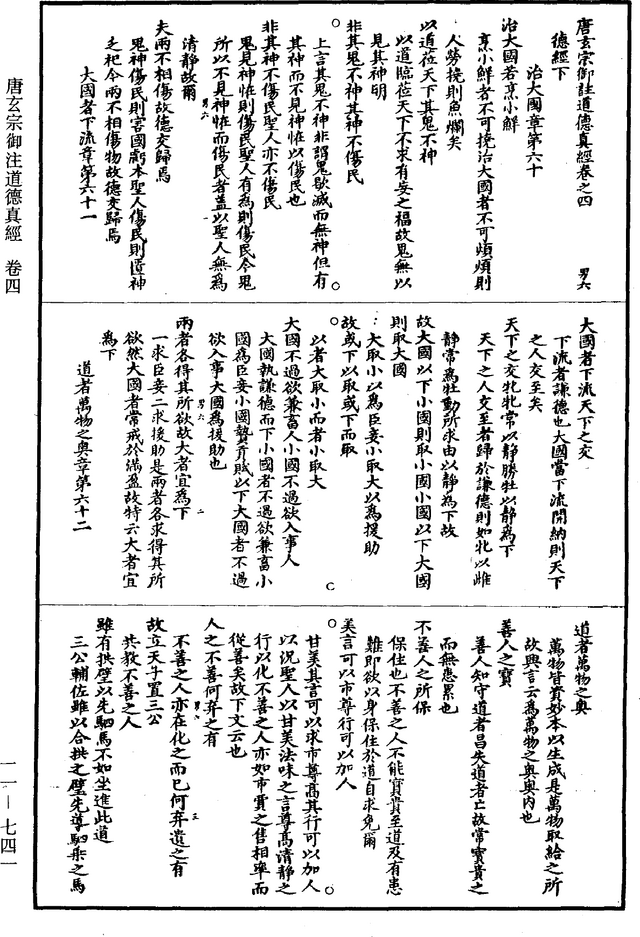 唐玄宗御註道德真經卷之四 男六
德經下
治大國章第六十
治大國若烹小鮮
烹小鮮者不可撓治大國者不可煩煩則
人勞撓則魚爛矣
以道莅天下其鬼不神
以道臨莅天下不求有妄之福故鬼無以
見其神明
非其鬼不神其神不傷民
上言其鬼不神非謂鬼歇滅而無神但有
其神而不見神恠以傷民也
非其神不傷民聖人亦不傷民
鬼見神恠則傷民聖人有為則傷民今鬼
所以不見神恠而傷民者蓋以聖人無為
清靜故爾
夫兩不相傷故德交歸焉
鬼神傷民則害國虧本聖人傷民則匱神
乏祀今兩不相傷物故德交歸焉
大國者下流章第六十一
大國者下流天下之交
下流者謙德也大國當下流開納則天下
之人交至矣
天下之交牝牝常以靜勝牡以靜為下
天下之人交至者歸於謙德則如牝以雌
靜常為牡動所求由以靜為下故
故大國以下小國則取小國小國以下大國
則取大國
大取小以為臣妾小取大以為援助
故或下以取或下而取
以者大取小而者小取大
大國不過欲兼畜人小國不過欲入事人
大國執謙德而下小國者不過欲兼畜小
國為臣妾小國贄貢賦以下大國者不過
欲入事大國為援助也
兩者各得其所欲故大者宜為下
一求臣妾二求援助是兩者各求得其所
欲然大國者常戒於滿盈故特云大者宜
為下
道者萬物之奧章第六十二
道者萬物之奧
萬物皆資妙本以生成是萬物取給之所
故興言云為萬物之奧奧內也
善人之寶
善人知守道者昌失道者亡故常寶貴之
而無患累也
不善人之所保
保住也不善之人不能寶貴至道及有患
難即欲以身保住於道自求免爾
美言可以市尊行可以加人
甘美其言可以求市尊高其行可以加人
以況聖人以甘美法味之言尊高清靜之
行以化不善之人亦如市賈之售相率而
從善矣故下文云也
人之不善何棄之有
不善之人亦在化之而已何棄遺之有
故立天子置三公
共教不善之人
雖有拱璧以先駟馬不如坐進此道
三公輔佐雖以合拱之璧先導駟乘之馬
唐玄宗御注道德真經 卷四
一一—七四一